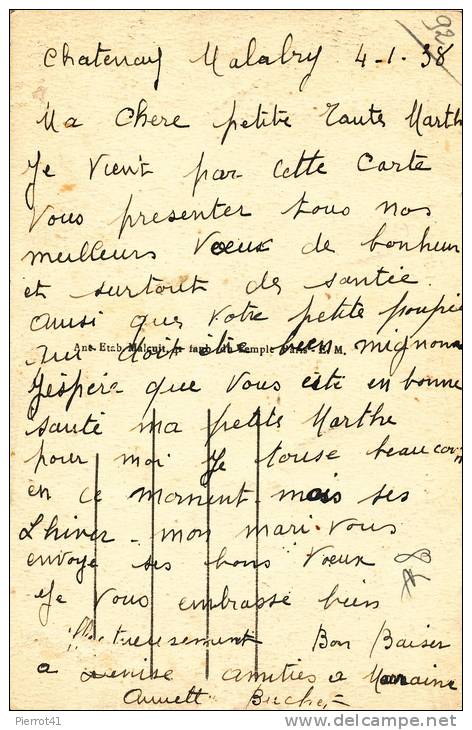 92
Chatenay Malabry 4-1-38
Ma chere petite tante Marth
Je vient par cette carte
vous presenter tous nos
meilleurs vœux de bonheur
et surtout de santée.
ainsi que votre petite poupée
qui doit être bien mignonn
Anc. Etab. Malcuit, faub. du Temple Paris E. M.
J'éspère que vous ete en bonne
santé ma petits Marthe
pour moi je touse beaucou
en ce moment - mais ses
L'hiver - mon mari vous
envoye ses bons vœux
Je vous embrasse bien
Bon Baiser
a Denise amitiés a Maraine
Annett
Pierrot41
www.delcampe.net